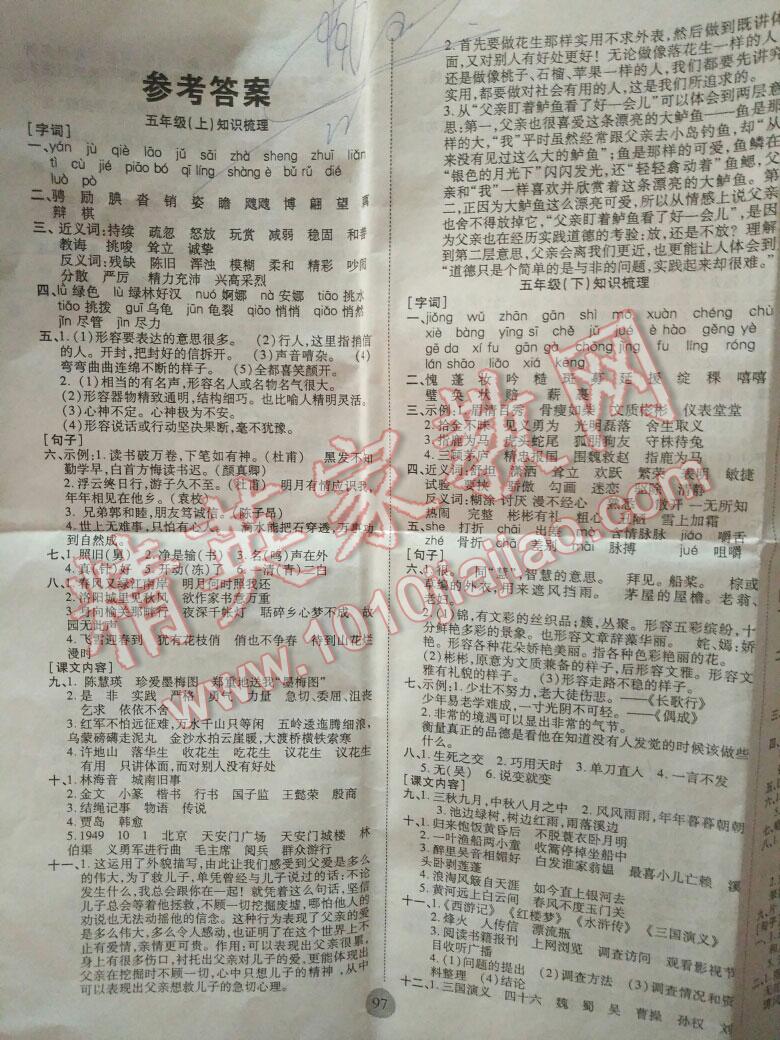 参考答案
五年级(上)知识梳理
[字词]
一、yán jù qiè lāo jǔ sāi zhà sheng zhuī liǎn
tì cù jié piāo bó qǐ líng shàng è bǔ rǔ dié
luò pò
二、骋 励 腆 沓 销 姿 瞻 飕飕 博 翩 望
辩 棋
三、近义词:持续 疏忽 怒放 玩赏 减弱 稳固 和善
教诲 挑唆 耸立 诚挚
反义词:残缺 陈旧 浑浊 模糊 柔和 精彩 吵闹
分散 严厉 精力充沛 兴高采烈
四、lǜ 绿色 lù 绿林好汉 nuó 婀娜 nà 安娜 tiāo 挑水
tiǎo 挑拨 guī 乌龟 jūn 龟裂 qiāo 悄悄 qiǎo 悄然
jǐn 尽管 jìn 尽力
五、1.(1)形容要表达的意思很多。 (2)行人,这里指捎信
的人。开封,把封好的信拆开。 (3)声音嘈杂。 (4)
弯弯曲曲连绵不断的样子。 (5)全都喜笑颜开。
2.(1)相当的有名声,形容名人或名物名气很大。
(2)形容器物精致通明,结构细巧。也比喻人精明灵活。
(3)心神不定。心神极为不安。
(4)形容说话或行动坚决果断,毫不犹豫。
[句子]
六、示例:1.读书破万卷,下笔如有神。(杜甫) 黑发不知
勤学早,白首方悔读书迟。(颜真卿)
2.浮云终日行,游子久不至。(杜甫) 明月有情应识我,
年年相见在他乡。(袁枚)
3.兄弟敦和睦,朋友笃信诚。(陈子昂)
4.世上无难事,只怕有心人。 滴水能把石穿透,万事功
到自然成。
七、1.照旧(舅) 2.净是输(书) 3.名(鸣)声在外
4.真(针)好 5.开动(冻)了 6.一清(青)二白
八、1.春风又绿江南岸 明月何时照我还
2.洛阳城里见秋风 欲作家书意万重
3.身向榆关那畔行 夜深千帐灯 聒碎乡心梦不成 故
园无此声
4.飞雪迎春到 犹有花枝俏 俏也不争春 待到山花烂
漫时
[课文内容]
九、1.陈慧瑛 珍爱墨梅图 郑重地送我“墨梅图”
2.是 非 实践 严格 勇气 力量 急切、委屈、沮丧
乞求 依依不舍
3.红军不怕远征难,万水千山只等闲 五岭逶迤腾细浪,
乌蒙磅礴走泥丸 金沙水拍云崖暖,大渡桥横铁索寒
4.许地山 落华生 收花生 吃花生 议花生 议花生
有用 只讲体面,而对别人没有好处
十、1.林海音 城南旧事
2.金文 小篆 楷书 行书 国子监 王懿荣 殷商
3.结绳记事 物语 传说
4.贾岛 韩愈
5.1949 10 1 北京 天安门广场 天安门城楼 林
伯渠 义勇军进行曲 毛主席 阅兵 群众游行
十一、1.这运用了外貌描写,由此让我们感受到父爱是多么
的伟大,为了救儿子,单凭曾经与儿子说过的话:不论
发生什么,我总会跟你在一起!就凭着这么句话,坚信
儿子总会等着他拯救,不顾一切挖掘废墟,哪怕他人的
劝说也无法动摇他的信念。这种行为表现了父亲的爱
是多么伟大,多么令人感动,也证明了在这个世界上不
止有爱情,亲情更可贵。作用:可以表现出父亲很累,
身上有很多伤口,衬托出父亲对儿子的爱,更能体现出
父亲在挖掘时不顾一切,心中只想儿子的精神,从中
可以表现出父亲想救儿子的急切心理。
2.首先要做花生那样实用不求外表,然后做到既讲体
面,又对别人有好处更好!无论做像落花生一样的人
还是做像桃子、石榴、苹果一样的人,我们都要先讲究
实用,都要做对社会有用的人,这是我们所追求的。
3.从“父亲盯着鲈鱼看了好一会儿”可以体会到两层意
思:第一,父亲也很喜爱这条漂亮的大鲈鱼——鱼是那
样的大,“我”平时虽然经常跟父亲去小岛钓鱼,却“从
来没有见过这么大的鲈鱼”;鱼是那样的可爱,鱼鳞在
“银色的月光下”闪闪发光,还“轻轻翕动着”鱼鳃,父
亲和“我”一样喜欢并欣赏着这条漂亮的大鲈鱼。第
二,正因为大鲈鱼这么漂亮可爱,所以从情感上说父亲
也舍不得放掉它,“父亲盯着鲈鱼看了好一会儿”,是因
为父亲也在经历实践道德的考验:放,还是不放?理解
到第二层意思,父亲会离我们更近,也更能让人体会到
“道德只是个简单的是与非的问题,实践起来却很难。”
五年级(下)知识梳理
[字词]
一、jiǒng wǔ zhān gān shì mò xuàn chéng chù
xiè bàng yīng sī chě jǔ juē è hào gěng yè
gē da xí fu gān gà chóng jǐng fu líng róng
lán shāo liáo xiá kēng
二、愧 蓬 妆 吟 糙 斑 募 延 援 绽 棵 嘻嘻
璧 奂 状 赔 薪 裹
三、示例:1.眉清目秀 骨瘦如柴 文质彬彬 仪表堂堂
2.拾金不昧 见义勇为 光明磊落 舍生取义
3.指鹿为马 虎头蛇尾 狐朋狗友 守株待兔
4.三顾茅庐 精忠报国 围魏救赵 指鹿为马
四、近义词:舒坦 潇洒 耸立 欢跃 繁荣 表明 敏捷
试验 要挟 骄傲 勾画 迷恋 清静
反义词:糊涂 讨厌 漫不经心 放开 一无所知
热闹 完整 彬彬有礼 粗心 丑陋 雪上加霜
五、she 打折 chāi 出差 mò 含情脉脉 jiáo 嚼舌
zhé 骨折 chā 差别 mài 脉搏 jué 咀嚼
[句子]
六、1.很。同“慧”,智慧的意思。 拜见。船桨。 棕或
草编的外衣,用来遮风挡雨。 茅屋的屋檐。老翁、
老妇。
2.(1)锦,有文彩的丝织品;簇,丛聚。形容五彩缤纷,十
分鲜艳多彩的景象。也形容文章辞藻华丽。 姹、嫣:娇
艳。形容各种花朵娇艳美丽。指各种色彩艳丽的花。
(2)彬彬,原意为文质兼备的样子,后形容文雅。形容文
雅有礼貌的样子。 (3)形容走路不稳的样子。
七、示例:1.少壮不努力,老大徒伤悲。——《长歌行》
少年易老学难成,一寸光阴不可轻。——《偶成》
2.非常的境遇可以显出非常的气节。
衡量真正的品德是看他在知道没有人发觉的时候该做些
什么。
八、1.生死之交 2.巧用天时 3.单刀直人 4.一言不发
5.无(吴) 6.说变就变
[课文内容]
九、1.三秋九月,中秋八月之中 2.风风雨雨,年年暮暮朝朝
3.池边绿树,树边红雨,雨落溪边
十、1.归来饱饭黄昏后 不脱蓑衣卧月明
2.一叶渔船两小童 收篙停棹坐船中
3.醉里吴音相媚好 白发谁家翁媪 最喜小儿亡赖 溪
头卧剥莲蓬
4.浪淘风簸自天涯 如今直上银河去
5.黄河远上白云间 春风不度玉门关
十一、1.《西游记》《红楼梦》《水浒传》《三国演义》
2.烽火 人传信 漂流瓶
3.阅读书籍报刊 上网浏览 调查访问 观看影视节
目收听广播
4.(1)问题的提出 (2)调查方法 (3)调查情况和资
料整理 (4)结论
十二、1.三国演义 四十六 魏 蜀 吴 曹操 孙权 刘
97
精英家教网
www.1010jiajiao.com